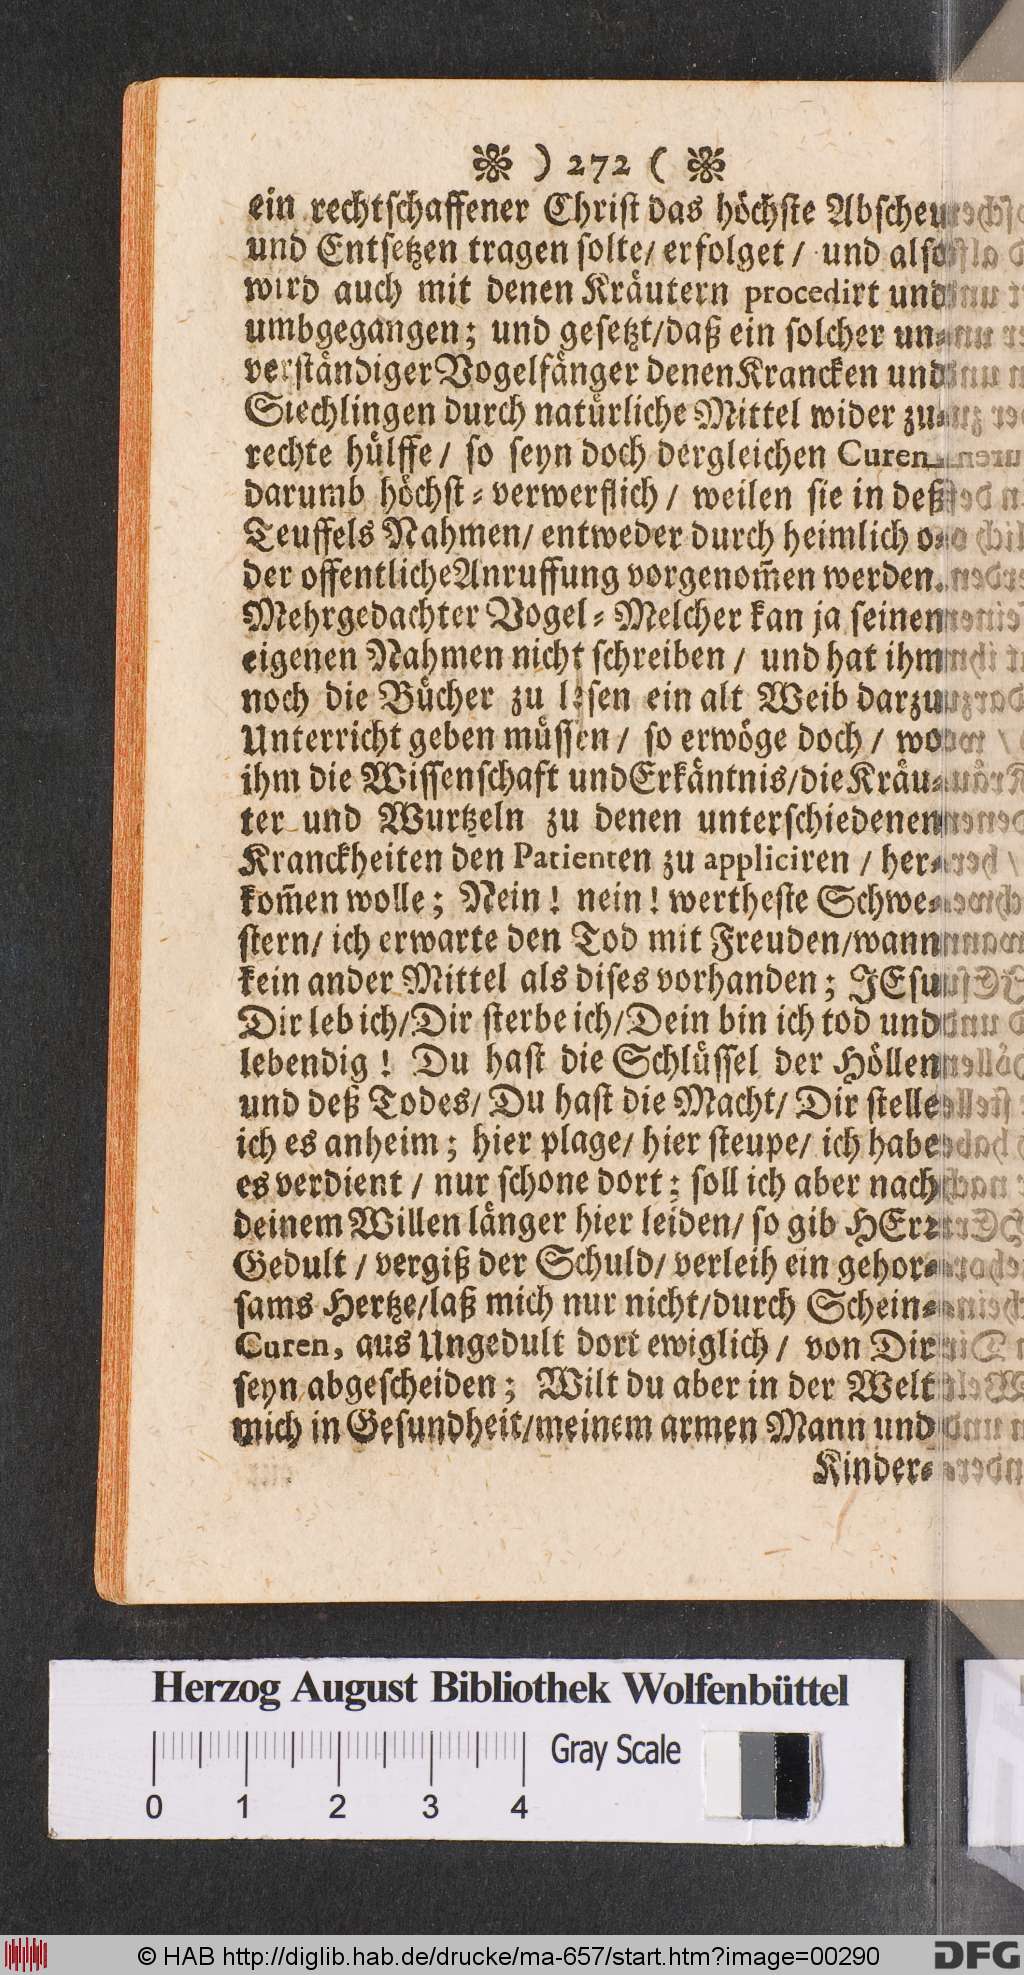 ) 272 (
ein rechtschaffener Christ das höchste Abscheu
und Entsetzen tragen solte/ erfolget / und also
wird auch mit denen Kräutern procedirt und
umbgegangen; und gesetzt/daß ein solcher un-
verständiger Vogelfänger denen Krancken und
Siechlingen durch natürliche Mittel wider zu-
rechte hülffe / so seyn doch dergleichen Curen
darumb höchst-verwerflich / weilen sie in deß
Teuffels Nahmen/ entweder durch heimlich o-
der offentliche Anruffung vorgenom̃en werden.
Mehrgedachter Vogel-Melcher kan ja seinen
eigenen Nahmen nicht schreiben / und hat ihm
noch die Bücher zu lesen ein alt Weib darzu
Unterricht geben müssen / so erwöge doch / wo
ihm die Wissenschaft und Erkäntnis/die Kräu-
ter und Wurtzeln zu denen unterschiedenen
Kranckheiten den Patienten zu appliciren / her-
kom̃en wolle; Nein! nein! wertheste Schwe-
stern/ ich erwarte den Tod mit Freuden/wann
kein ander Mittel als dises vorhanden; JEsu
Dir leb ich/Dir sterbe ich/Dein bin ich tod und
lebendig! Du hast die Schlüssel der Höllen
und deß Todes/ Du hast die Macht/ Dir stelle
ich es anheim; hier plage/ hier steupe/ ich habe
es verdient / nur schone dort; soll ich aber nach
deinem Willen länger hier leiden/ so gib HErr
Gedult / vergiß der Schuld/ verleih ein gehor-
sams Hertze/laß mich nur nicht/durch Schein-
Curen, aus Ungedult dort ewiglich / von Dir
seyn abgescheiden; Wilt du aber in der Welt
mich in Gesundheit/meinem armen Mann und
Kinder-
Herzog August Bibliothek Wolfenbüttel
Gray Scale
0 1 2 3 4
© HAB http://diglib.hab.de/drucke/ma-657/start.htm?image=00290
DFG